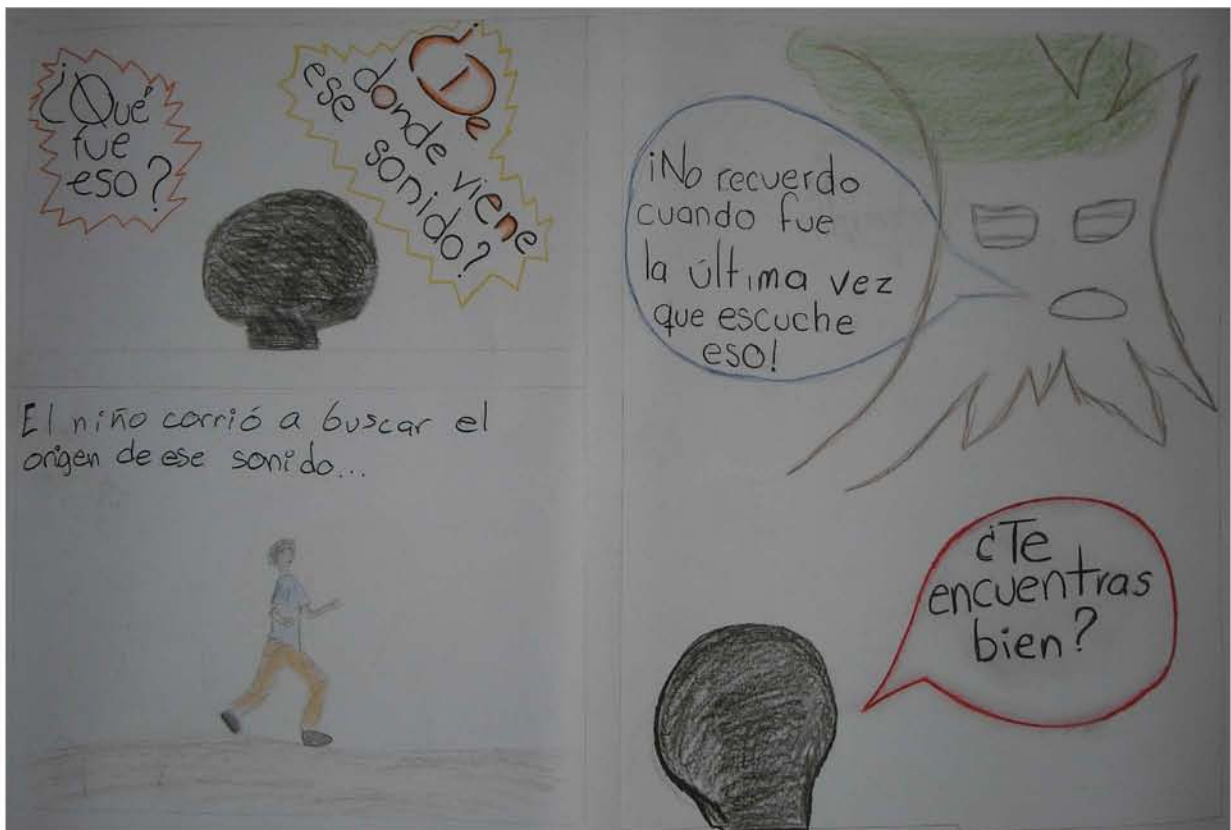 ¿Qué
fue
eso?
¿De
donde viene
ese sonido?
El niño corrió a buscar el
origen de ese sonido...
¡No recuerdo
cuando fue
la última vez
que escuche
eso!
¿Te
encuentras
bien?